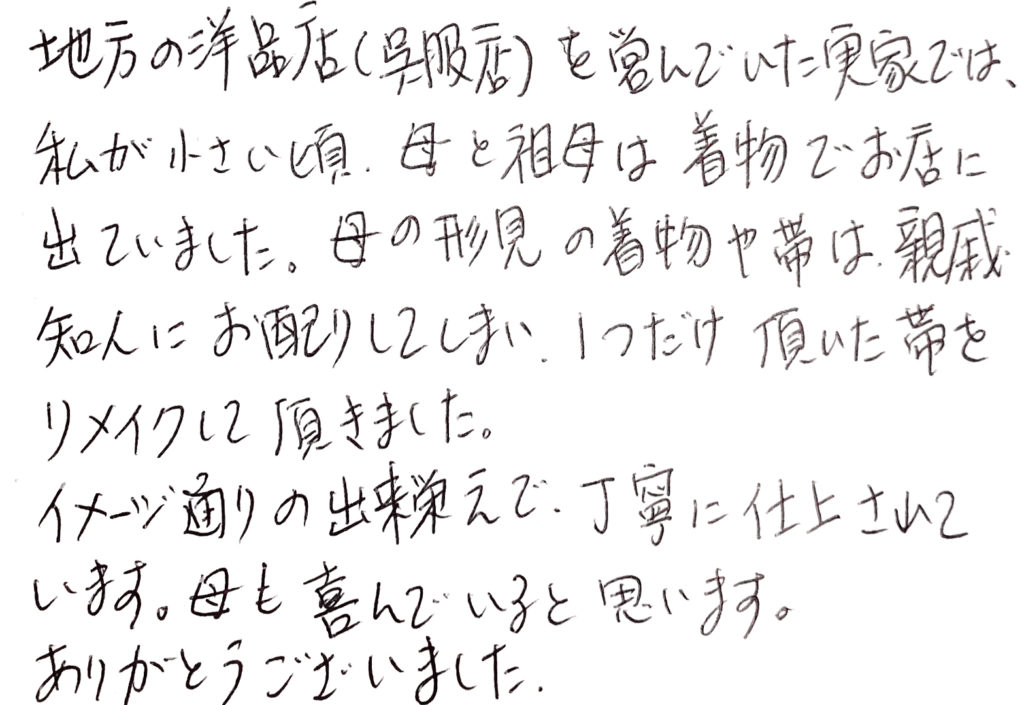 地方の洋品店(呉服店)を営んでいた実家では、
私が小さい頃、母と祖母は着物でお店に
出ていました。母の形見の着物や帯は、親戚
知人にお配りしてしまい、1つだけ頂いた帯を
リメイクして頂きました。
イメージ通りの出来栄えで、丁寧に仕上されて
います。母も喜んでいると思います。
ありがとうございました.